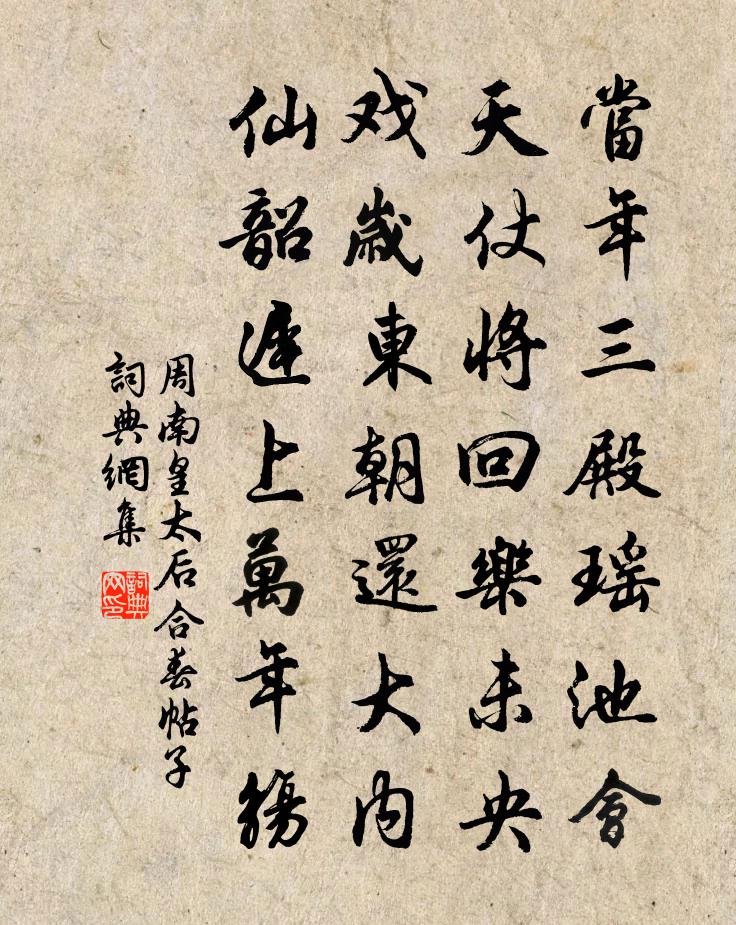 當年三殿瑤池會
天仗將回樂未央
戏歲東朝還大内
仙韶遅上萬年觴
周南皇太后合春帖子
詞典網集
詞典
网印